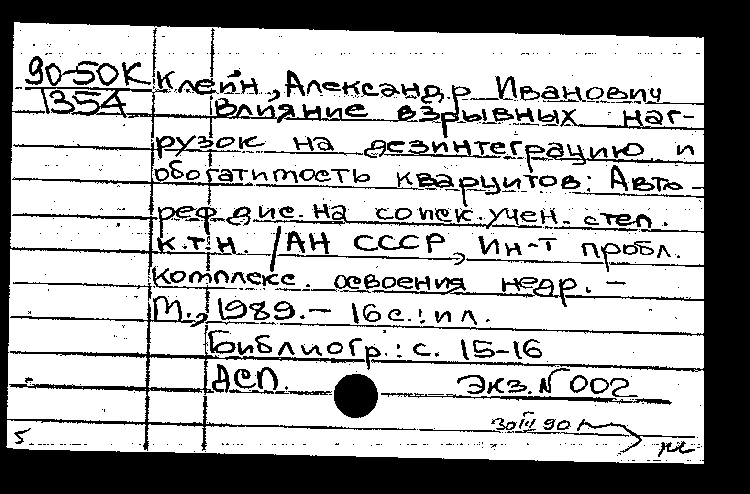 90-50К Клейн, Александр Иванович
1354 Влияние взрывных наг-
рузок на дезинтеграцию и
обогатимость кварцитов: Авто-
реф дис. на соиск. учен. степ.
к.т.н. / АН СССР, Ин-т пробл.
комплекс. освоения недр. –
М., 1989. – 16 с.: ил.
Библиогр.: с. 15-16
ДСП. Экз. N 002
30 III 90 г
5